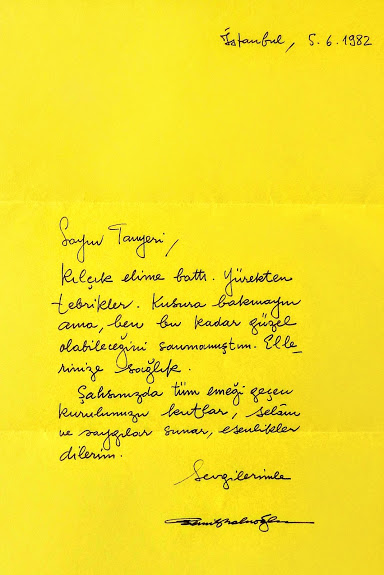 İstanbul, 5.6.1982
Sayın Tanyeri,
Kılçık elime battı. Yürekten
tebrikler. Kusura bakmayın
ama, ben bu kadar güzel
olabileceğini sanmamıştım. Elle_
rinize sağlık.
Şahsınızda tüm emeği geçen
kurulunuzu kutlar, selâm
ve saygılar sunar, esenlikler
dilerim.
Sevgilerimle